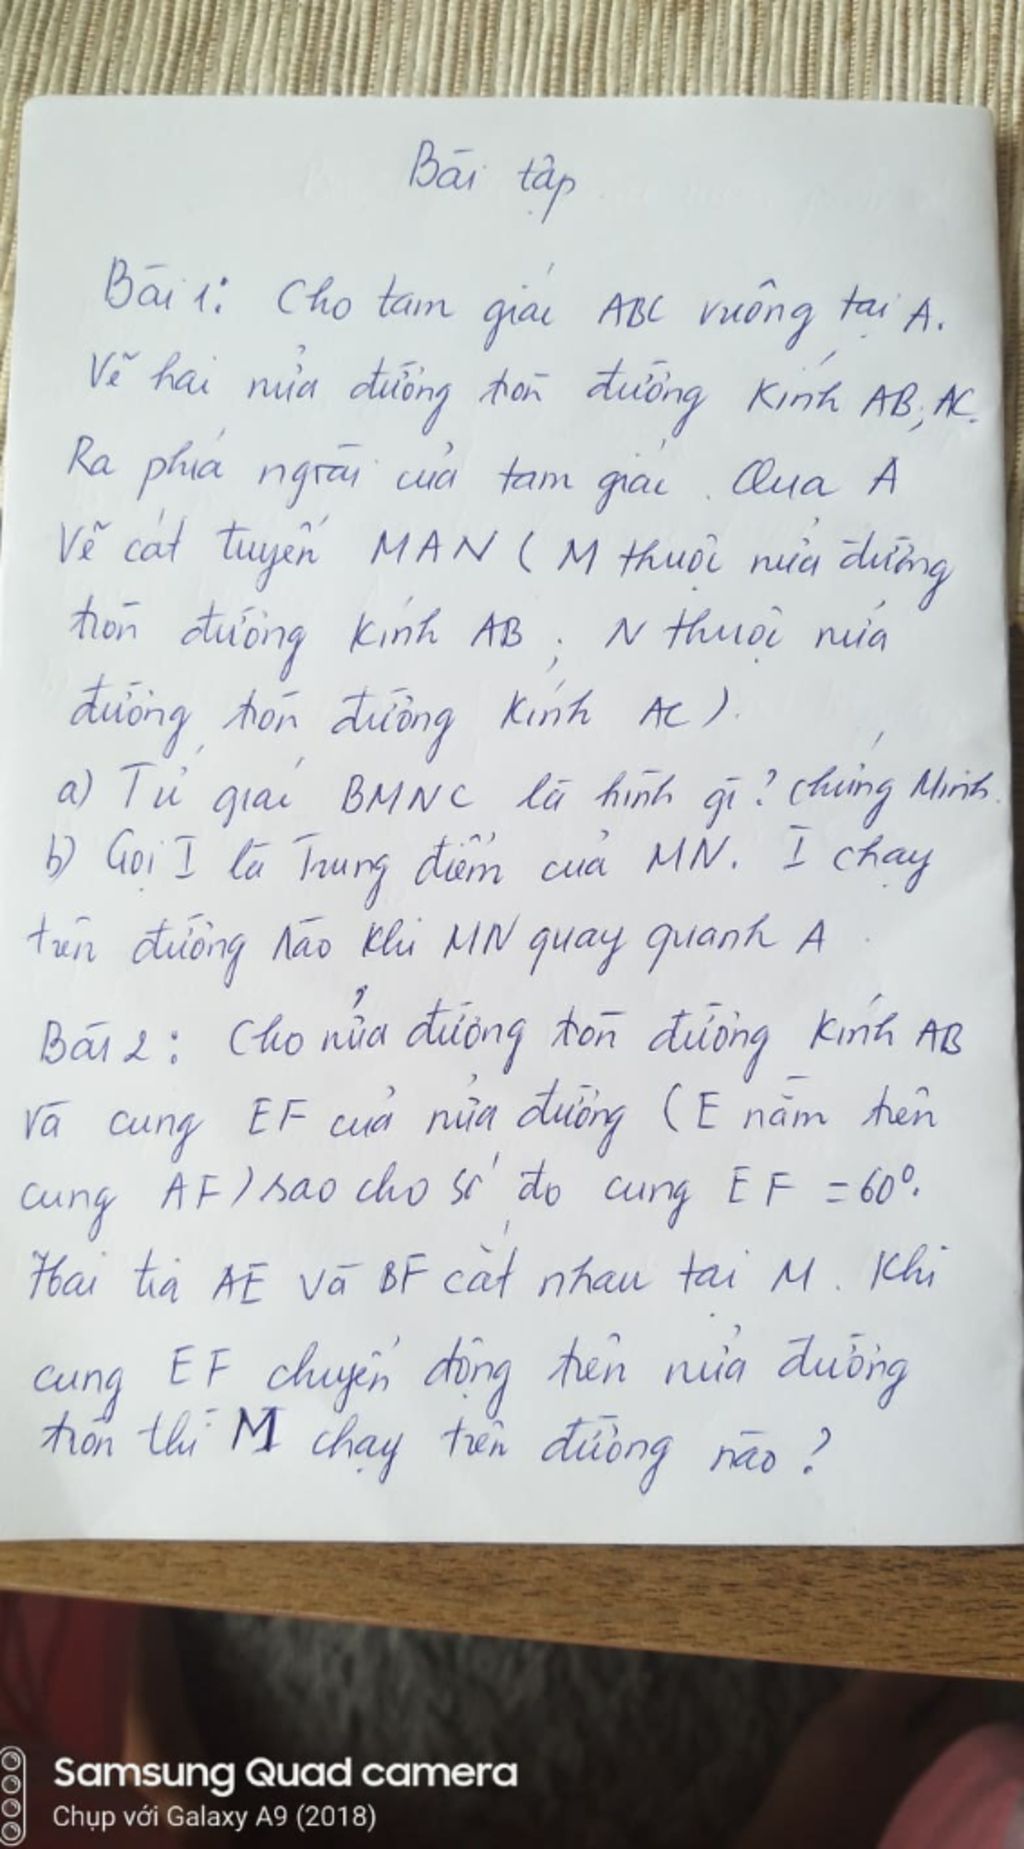 Bài tập
Bài 1: Cho tam giác ABC vuông tại A.
Vẽ hai nửa đường tròn đường kính AB, AC.
Ra phía ngoài của tam giác. Qua A
Vẽ cát tuyến MAN ( M thuộc nửa đường
tròn đường kính AB; N thuộc nửa
đường tròn đường kính AC).
a) Tứ giác BMNC là hình gì? chứng Minh.
b) Gọi I là Trung điểm của MN. I chạy
trên đường nào khi MN quay quanh A.
Bài 2: Cho nửa đường tròn đường kính AB
Và cung EF của nửa đường (E nằm trên
cung AF) sao cho số đo cung EF = 60°.
Hai tia AE Và BF cắt nhau tại M. Khi
cung EF chuyển động trên nửa đường
tròn thì M chạy trên đường nào?
Samsung Quad camera
Chụp với Galaxy A9 (2018)